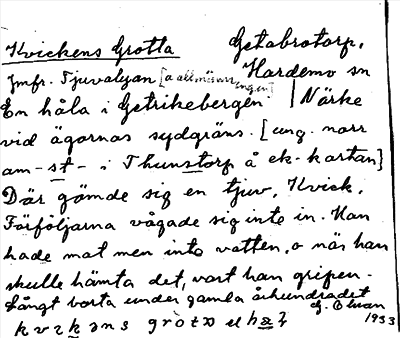 Kvickens Grotta Getabrotorp,
Jmfr. Tjuvalyan Hardemo sn
En håla i Getrikebergen Närke
vid ägornas sydgräns. [ung. norr
om -st- i Thunstorp å ek-kartan]
Där gömde sig en tjuv, Kvick.
Förföljarna vågade sig inte in. Han
hade mat men inte vatten, o när han
skulle hämta det, vart han gripen.
Långt borta under gamla århundradet
G. Ekman
1933